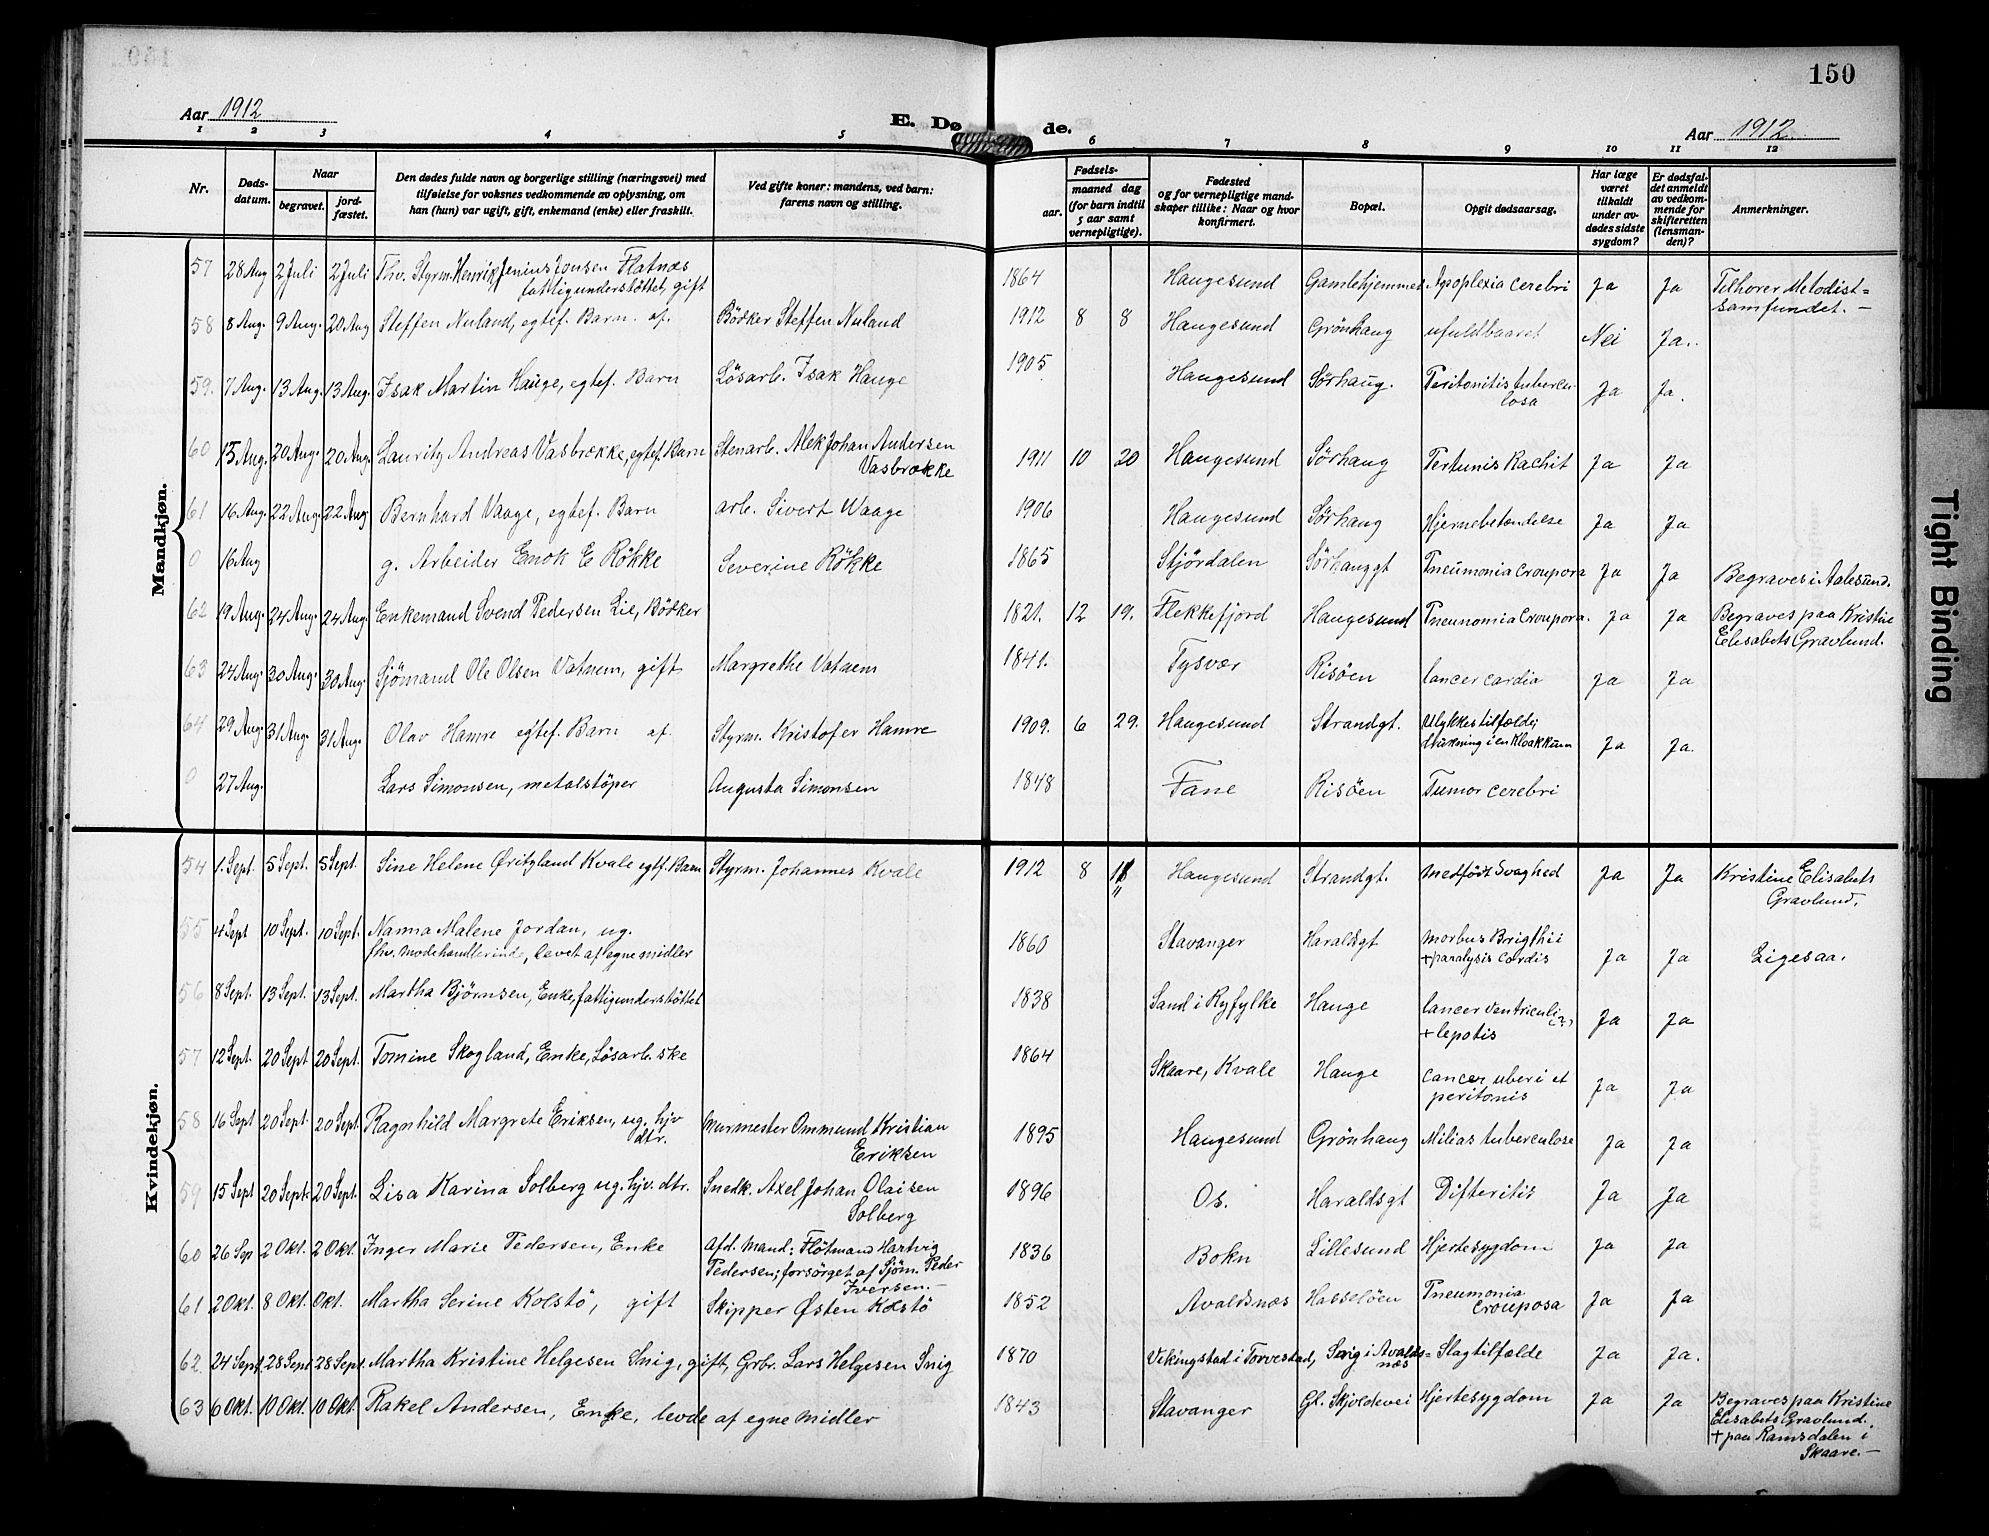 150
Aar 1912
E. Dø de.
Aar 1912
1 2 3 4 5 6 7 8 9 10 11 12
Nr.
Døds-
datum.
Naar
begravet.
jord-
fæstet.
Den dødes fulde navn og borgerlige stilling (næringsvei) med
tilføielse for voksnes vedkommende av oplysning, om
han (hun) var ugift, gift, enkemand (enke) eller fraskilt.
Ved gifte koner: mandens, ved barn:
farens navn og stilling.
Fødsels-
aar.
maaned dag
(for barn indtil
5 aar samt
vernepligtige).
Fødested
og for vernepligtige mand-
skaper tillike: Naar og hvor
konfirmert.
Bopæl.
Opgit dødsaarsag.
Har læge
været
tilkaldt
under av-
dødes sidste
sygdom?
Er dødsfal-
det anmeldt
av vedkom-
mende for
skifteretten
(lensman-
den)?
Anmerkninger.
Mandkjøn.
57 28 Aug 2 Juli 2 Juli Fhv. Styrm. Henrik Jenius Jonsen Flatnæs 1864 Haugesund Gamlehjemmet Apoplexia cerebri Ja Ja Tilhører Metodist=
fattigunderstøttet, gift samfundet. —
58 8 Aug. 9 Aug. 20 Aug Steffen Nuland, egtef. Barn af Bödker Steffen Nuland 1912 8 8 Haugesund Grönhaug ufuldbaaret Nei Ja.
59. 7 Aug. 13 Aug. 13 Aug. Isak Martin Hauge, egtef. Barn Løsarb. Isak Hauge 1905 Haugesund Sörhaug. Peritonitis tubercu-
losa Ja Ja.
60 15 Aug. 20 Aug. 20 Aug. Lauritz Andreas Vasbrække, egtef. Barn Stenarb. Alek Johan Andersen
Vasbrække 1911 10 20 Haugesund Sörhaug Pertunis Rachit Ja Ja
61 16 Aug. 22 Aug. 22 Aug Bernhard Vaage, egtef. Barn arb. Sivert Waage 1906 Haugesund Sörhaug Hjernebetændelse Ja Ja
0 16 Aug g. Arbeider Enok E Rökke Severine Rökke 1865 Stjördalen Sörhauggt Pneumonia Croupora Ja Ja Begraves i Aalesund.
62 19 Aug. 24 Aug. 24 Aug. Enkemand Svend Pedersen Lie, Bödker 1821. 12 19. Flekkefjord Haugesund Pneumonia Croupora. Ja Ja Begraves paa Kristine
Elisabets Gravlund.
63 24 Aug. 30 Aug. 30 Aug. Sjömand Ole Olsen Vatnem, gift Margrethe Vatnem 1841. Tysvær Risöen Cancer cardia Ja Ja
64 29 Aug. 31 Aug. 31 Aug. Olav Hamre egtef. Barn af Styrm. Kristofer Hamre 1909. 6 29. Haugesund Strandgt. Ulykkestilfælde;
drukning i en Kloakkum Ja Ja.
0 27 Aug. Lars Simonsen, metalstöper Augusta Simonsen 1848 Fane Risöen Tumor cerebri
Kvindekjøn.
54 1. Sept. 5 Sept. 5 Sept. Sine Helene Kvale egtef. Barn Styrm. Johannes Kvale 1912 8 11 Haugesund Strandgt. Medfödt Svaghed Ja Ja Kristine Elisabets
Gravlund.
55 4 Sept 10 Sept. 10 Sept. Nanna Malene Jordan, ug. 1860 Stavanger Haraldsgt Morbus Brigthii
fhv. modehandlerinde, levet af egne midler + paralysis cordis Ja Ja Ligesaa.
56 8 Sept. 13 Sept. 13 Sept. Martha Bjørnsen, Enke, fattigunderstøttet 1838 Sand i Ryfylke Hauge Cancer ventriculi (?)
+ lepotis Ja Ja
57 12 Sept. 20 Sept 20 Sept. Tomine Skogland, Enke, Løsarb.ske 1864 Skaare, Kvale Hauge Cancer uberi et
peritonis Ja Ja
58 16 Sept 20 Sept. 20 Sept. Ragnhild Margrete Eriksen, ug. hjv
dtr. Murmester Ommund Kristian
Eriksen 1895 Haugesund Grönhaug Milias tuberculose Ja Ja
59 15 Sept 20 Sept. 20 Sept. Lisa Karina Solberg ug. hjv. dtr. Snedk. Axel Johan Olaisen
Solberg 1896 Os. Haraldsgt Difteritis Ja Ja
60 26 Sep 2 Okt. 2 Okt. Inger Marie Pedersen, Enke Afd. Mand: Fløtmand Hartvig
Pedersen; forsörget af Sjöm. Peder
Iversen. — 1836 Bokn Lillesund Hjertesygdom Ja Ja
61 2 Okt. 8 Okt. Okt. Martha Serine Kolstö, gift Skipper Østen Kolstö 1852 Avaldsnæs Hasselöen Pneumonia
Crouposa Ja Ja
62 24 Sept. 28 Sept 28 Sept. Martha Kristine Helgesen Snig, gift, Grbr. Lars Helgesen Snig 1870 Vikingstad i Torvestad, Snig i Avalds=
næs Slagtilfælde Ja Ja.
63 6 Okt. 10 Okt. 10 Okt. Rakel Andersen, Enke, levde af egne midler 1843 Stavanger Gl. Skjoldevei Hjertesygdom Ja Ja Begraves paa Kristine
Elisabets Gravlund.
+ paa Ramsdalen i
Skaare. —
Tight Binding